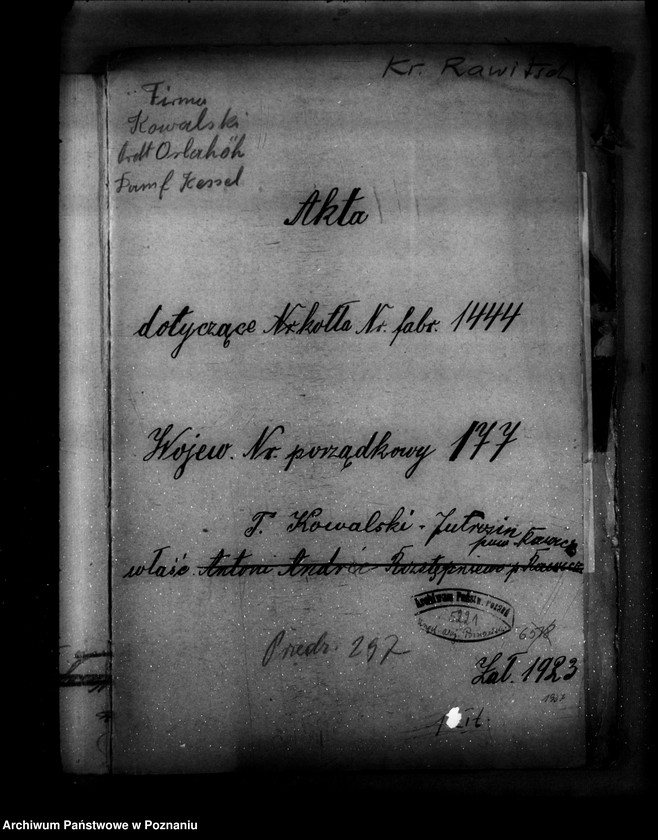 Kr. Rawitsch
Firma
Kowalski
Dampf Kessel
Akta
dotyczące Nr. kotła Nr. fabr. 1444
Wojew. Nr. porządkowy 177
T. Kowalski - Jutrosin
pow. Rawicz
właść. Antoni Andrić Rozstępniewo p. Rawicz
Archiwum Państw. Poznań
5221
Urząd Woj. Poznański
297
Zał. 1923
1927
Archiwum Państwowe w Poznaniu